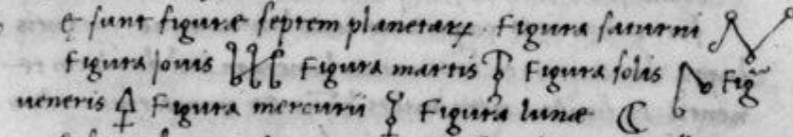 & sunt figuræ septem planetarꝝ. Figura saturni
Figura Jouis Figura martis Figura solis Fig̃
ueneris Figura mercurii Figura lunæ ☾